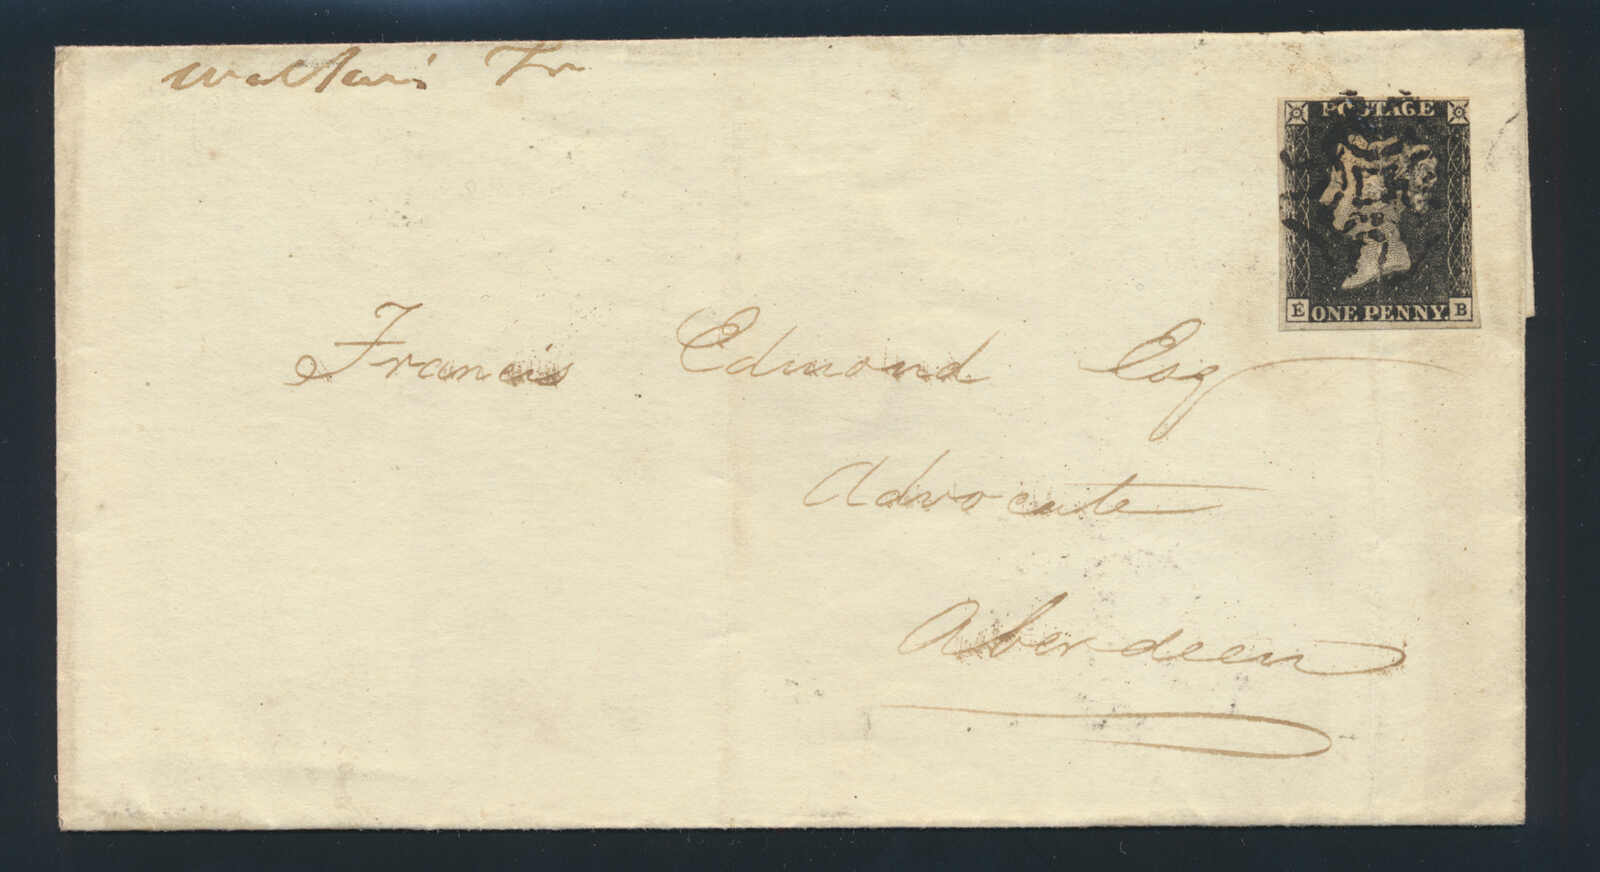 POSTAGE
ONE PENNY.
E B
Francis Edmond Esq
Advocate
Aberdeen